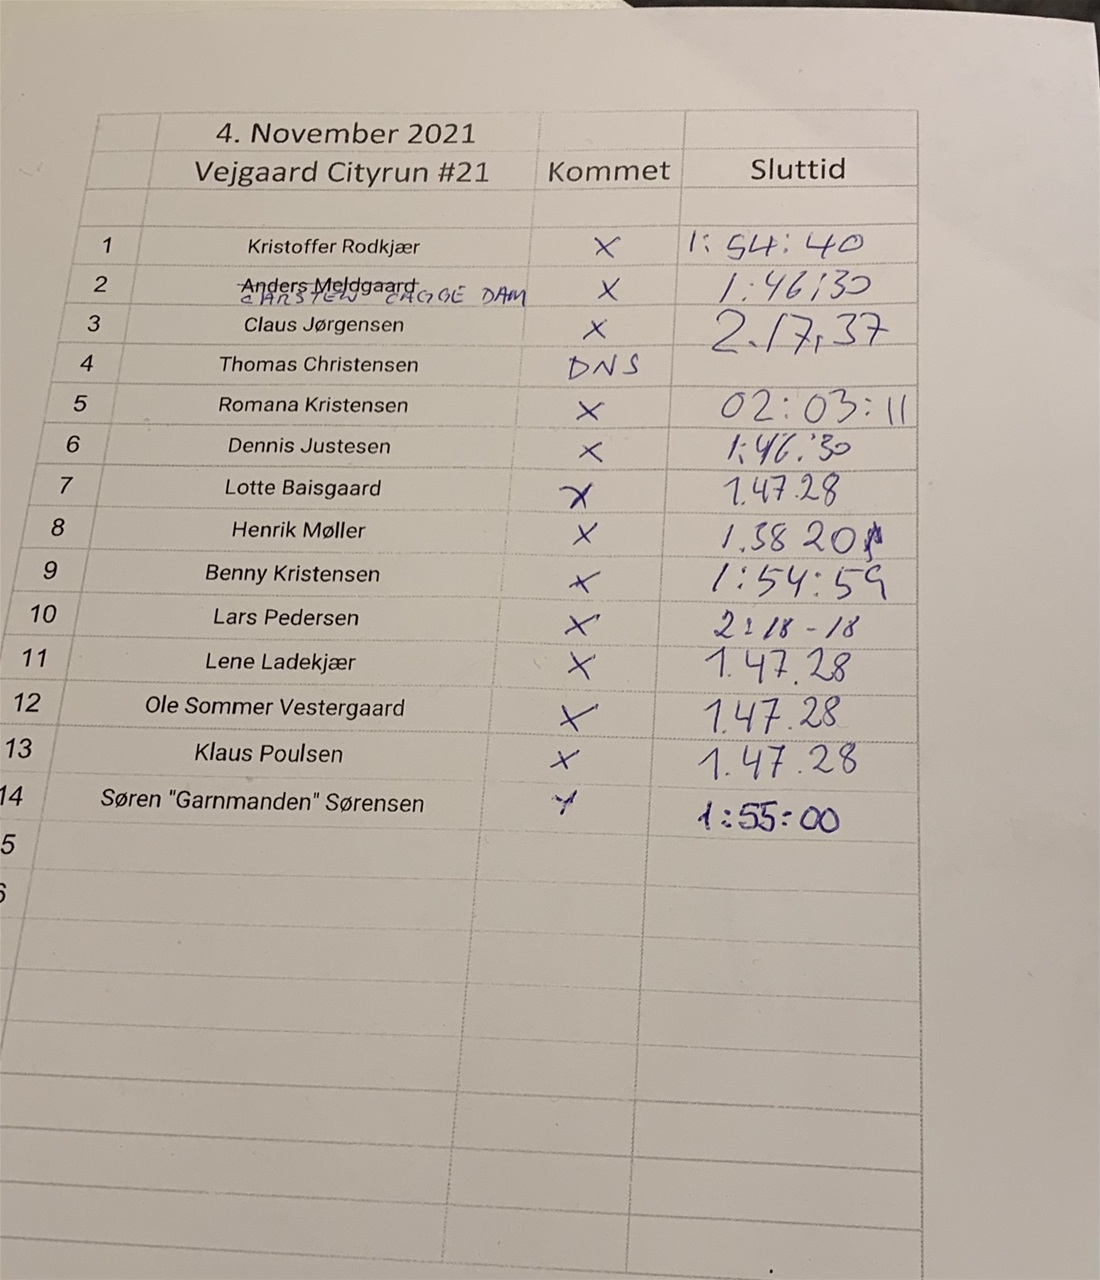 4. November 2021
Vejgaard Cityrun #21 Kommet Sluttid
1 Kristoffer Rodkjær X 1:54:40
2 Anders Meldgaard X 1:46:30
CARSTEN DAM
3 Claus Jørgensen X 2.17,37
4 Thomas Christensen DNS
5 Romana Kristensen X 02:03:11
6 Dennis Justesen X 1:46:30
7 Lotte Baisgaard X 1.47.28
8 Henrik Møller X 1.38 20
9 Benny Kristensen X 1:54:59
10 Lars Pedersen X 2:18-18
11 Lene Ladekjær X 1.47.28
12 Ole Sommer Vestergaard X 1.47.28
13 Klaus Poulsen X 1.47.28
14 Søren "Garnmanden" Sørensen X 1:55:00
5
6